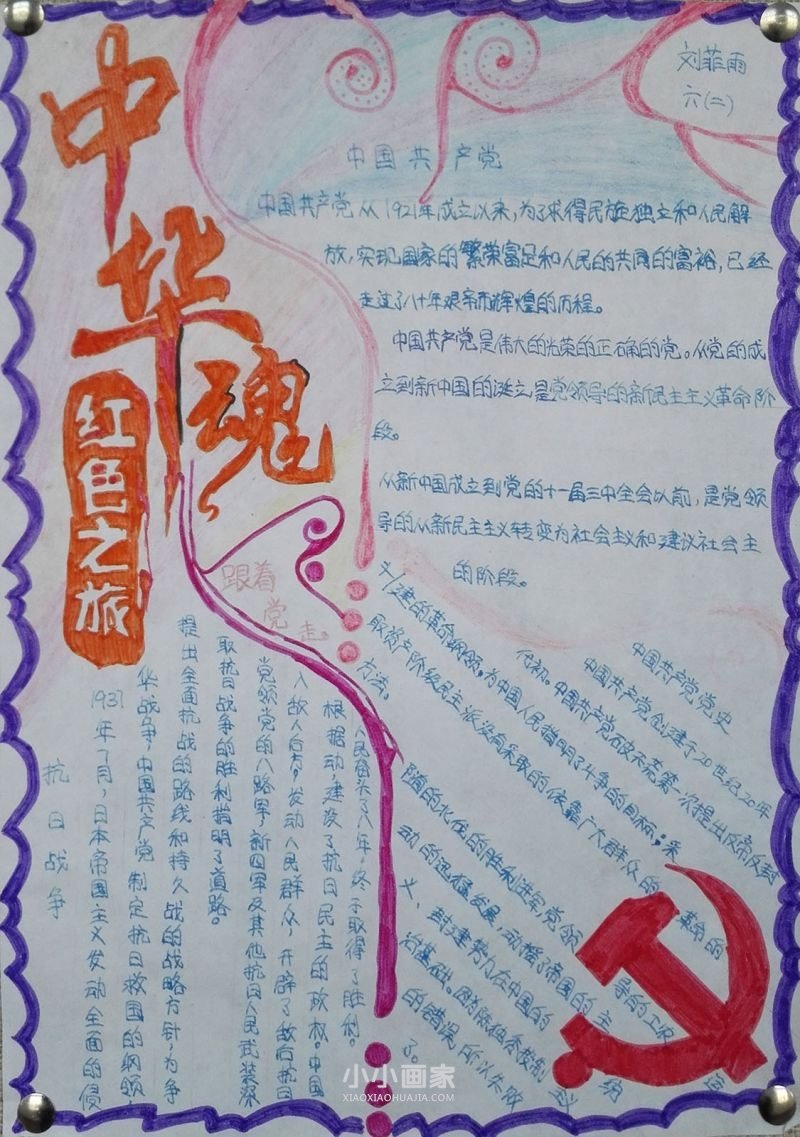 中华魂
红色之旅
刘菲雨
六(二)
中国共产党
中国共产党从1921年成立以来，为了求得民族独立和人民解
放，实现国家的繁荣富足和人民的共同的富裕，已经
走过了八十年艰帝而辉煌的历程。
中国共产党是伟大的光荣的正确的党。从党的成
立到新中国的诞立是党领导的新民主主义革命阶
段。
从新中国成立到党的十一届三中全会以前，是党领
导的从新民主主义转变为社会主义和建议社会主
的阶段。
跟着
党
走。
中国共产党党史
中国共产党创建于20世纪20年
代初。中国共产党破天荒第一次提出反帝反封
建的革命纲领，为中国人民指明了斗争的目标；采
取资产阶级民主派没有采取的，依靠广大群众的
方法。
革命的
随的水伍的胜利进军，党领
导的工农
动的迅猛发展，动摇了帝国的主
义、封建势力在中国的
的错误，所以失败
了。
抗日战争
1937年7月，日本帝国主义发动全面的侵
华战争，中国共产党制定抗日救国的纲领
提出全面抗战的路线和持久战的战略方针，为争
取抗日战争的胜利指明了道路。
党领党的八路军，新四军及其他抗日人民武装深
入敌人后方，发动人民群众，开辟了敌后抗日
根据动，建设了抗日民主的政权。中国
人民奋头了八年，终于取得了胜利。
小小画家
XIAOXIAOHUAJIA.COM